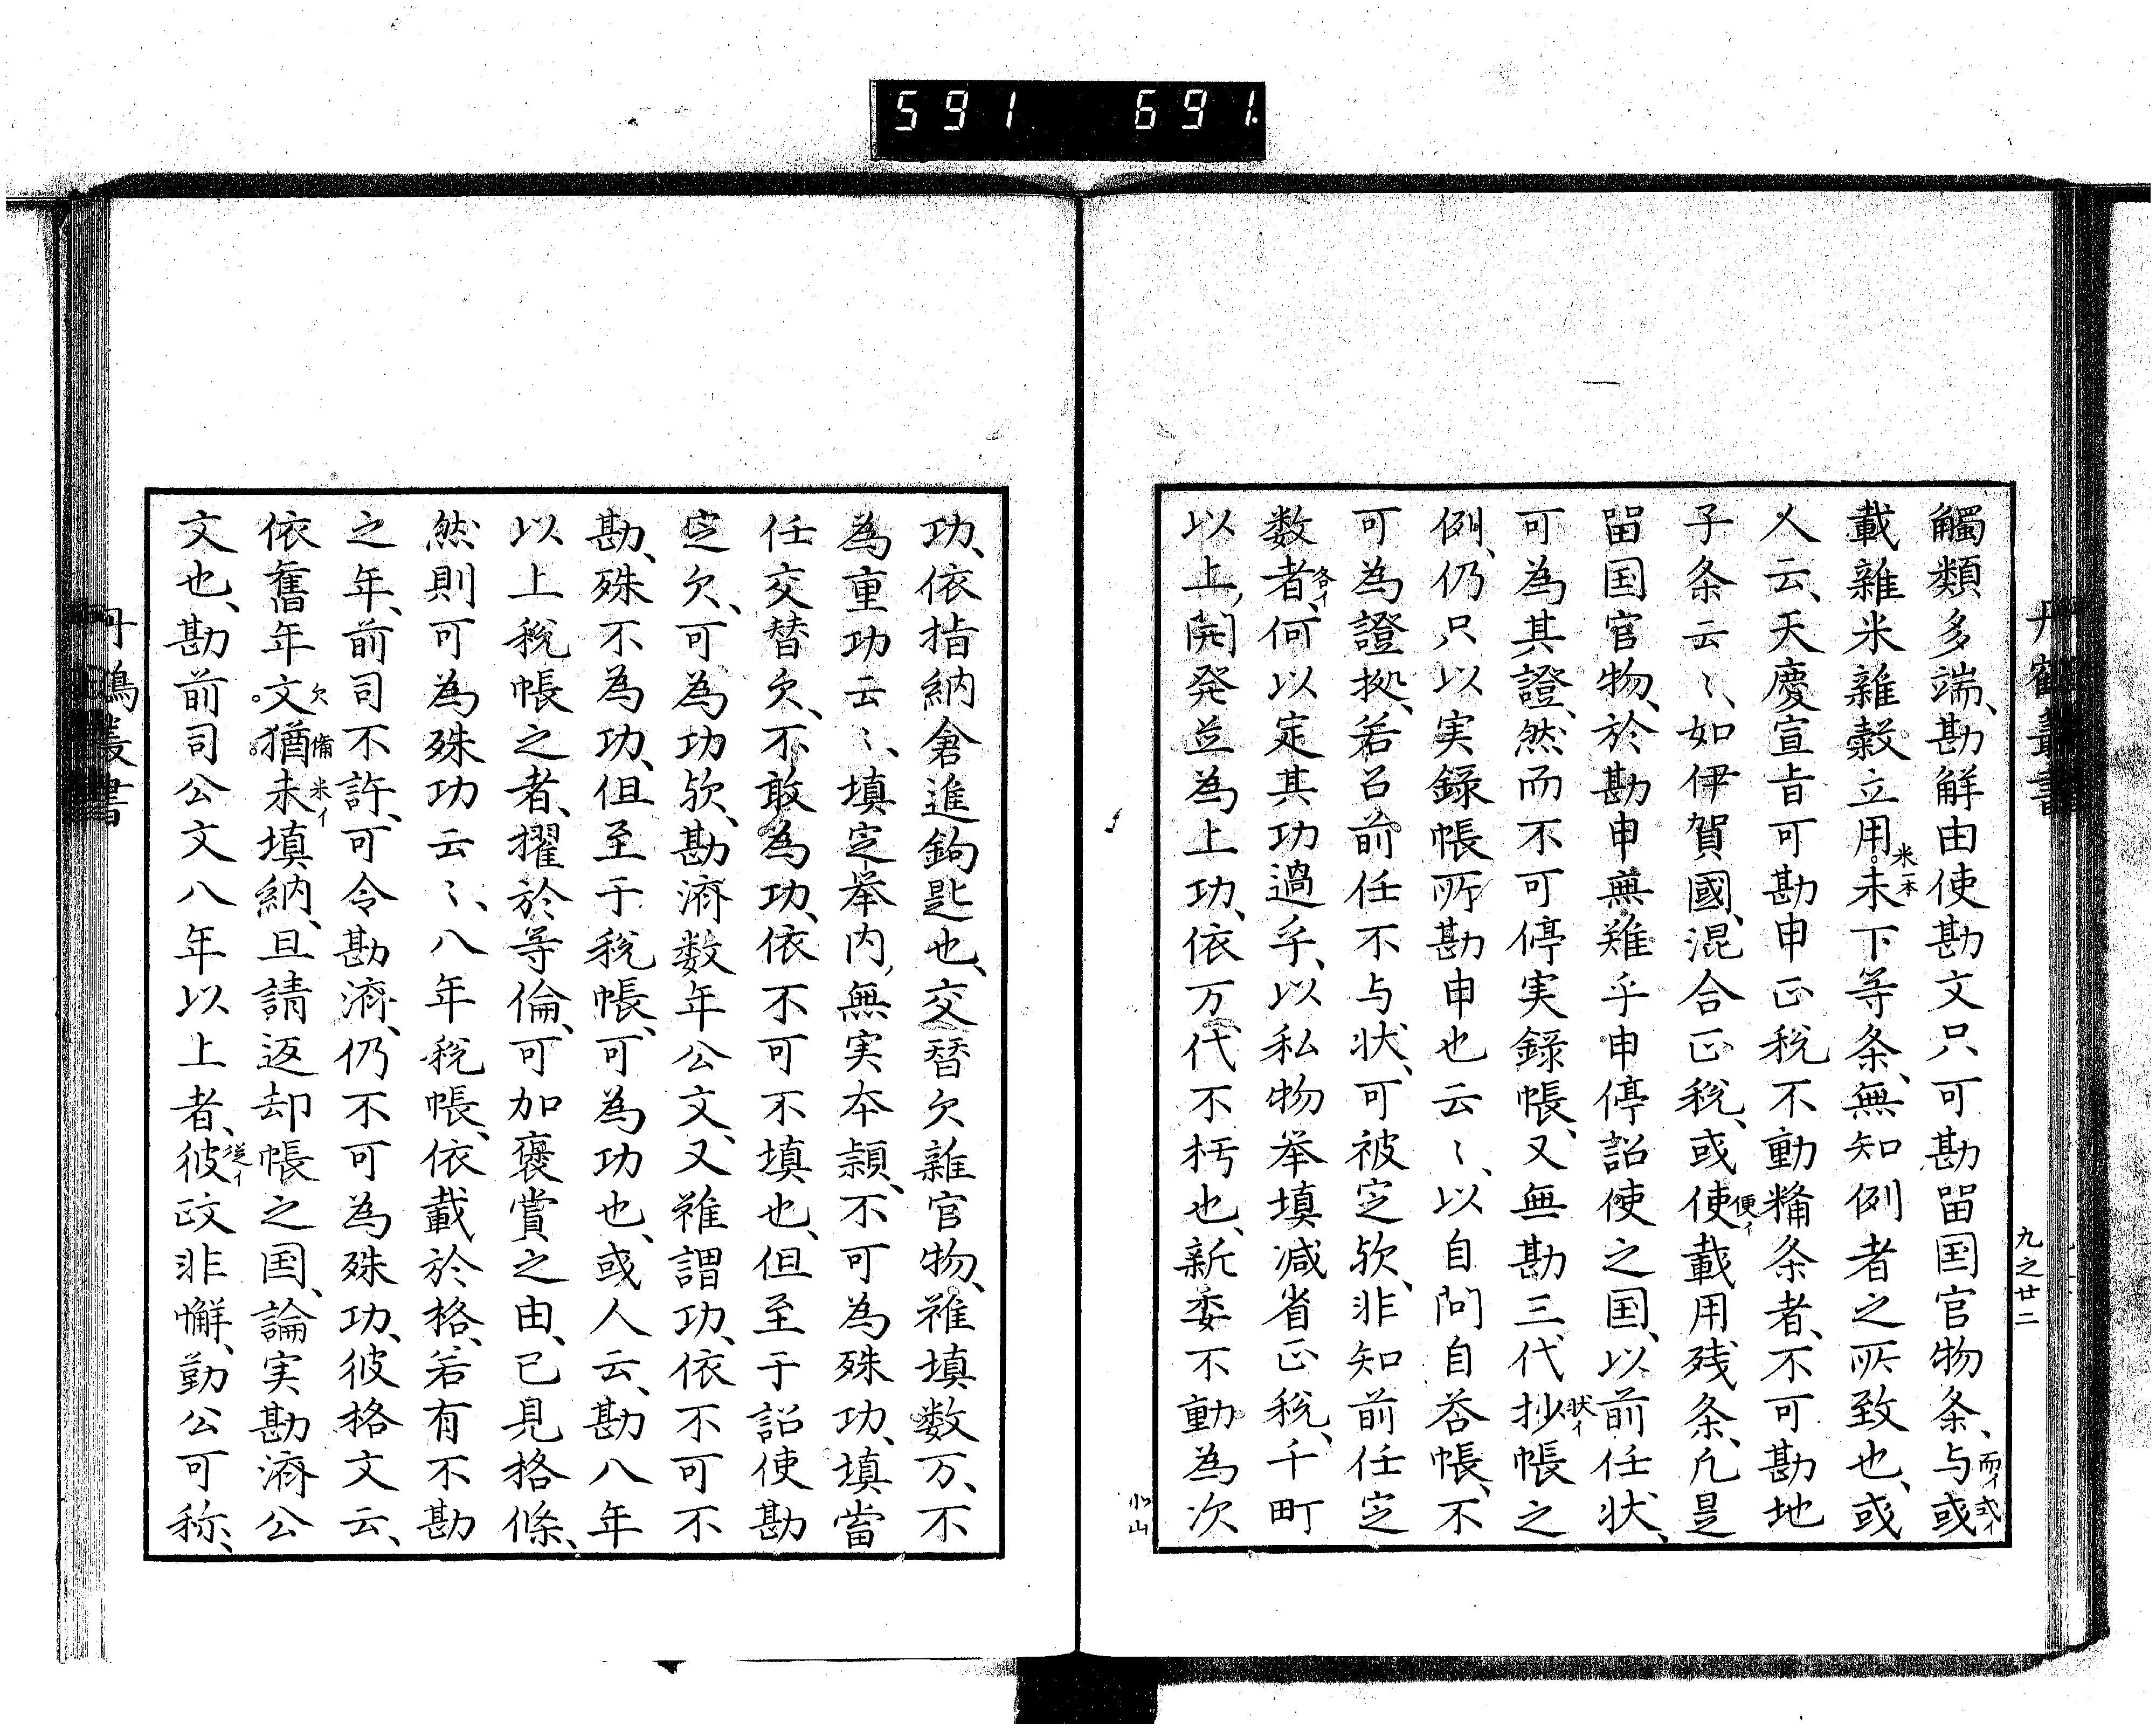 591 691.
丹鶴叢書
九之廿二
觸類多端、勘解由使勘文只可勘留国官物条、与或
而イ 式イ
載雑米雑穀立用。未下等条、無知例者之所致也、或
米一本
人云、天慶宣旨可勘申正税不動糒条者、不可勘地
子条云〻、如伊賀國、混合正税、或使載用残条、凡是
便イ
留国官物、於勘申無難乎申停詔使之国、以前任状、
可為其證、然而不可停実錄帳、又無勘三代抄帳之
状イ
例、仍只以実録帳所勘申也云〻、以自問自荅帳、不
可為證拠、若召前任不与状、可被定欤、非知前任定
数者、何以定其功過乎、以私物挙填減省正税、千町
各イ
以上、開発並為上功、依万代不朽也、新委不動為次
北山
功、依指納倉進鉤匙也、交替欠雑官物、雖填数万、不
為重功云〻、填定挙内、無実本頴、不可為殊功、填當
任交替欠、不敢為功、依不可不填也、但至于詔使勘
定欠、可為功欤、勘済数年公文、又雖謂功、依不可不
勘、殊不為功、但至于税帳、可為功也、或人云、勘八年
以上税帳之者、擢於等倫、可加褒賞之由、已見格條、
然則可為殊功云〻、八年税帳、依載於格、若有不勘
之年、前司不許、可令勘済、仍不可為殊功、彼格文云、
依舊年文。猶未填納、且請返却帳之国、論実勘済公
欠 備 米イ
文也、勘前司公文八年以上者、彼政非懈、勤公可称、
従イ
丹鶴叢書